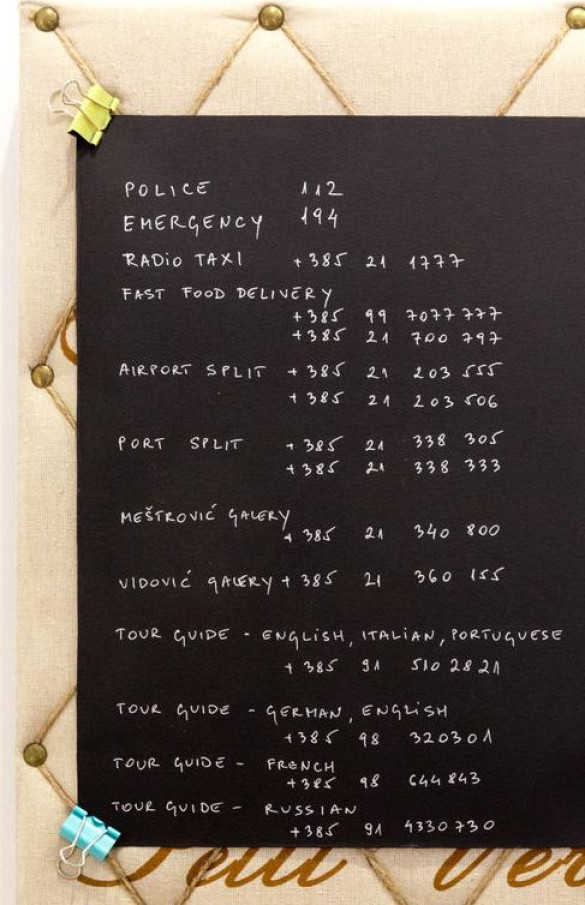 POLICE 112
EMERGENCY 194
RADIO TAXI +385 21 1777
FAST FOOD DELIVERY
+385 99 7077 777
+385 21 700 797
AIRPORT SPLIT +385 21 203 555
+385 21 203 506
PORT SPLIT +385 21 338 305
+385 21 338 333
MEŠTROVIĆ GALERY
+385 21 340 800
VIDOVIĆ GALERY +385 21 360 155
TOUR GUIDE - ENGLISH, ITALIAN, PORTUGUESE
+385 91 510 28 21
TOUR GUIDE - GERMAN, ENGLISH
+385 98 320301
TOUR GUIDE - FRENCH
+385 98 644 843
TOUR GUIDE - RUSSIAN
+385 91 4330 730